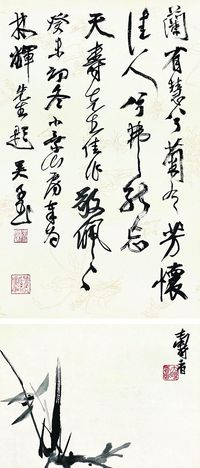 蘭有慧兮菊有芳懷
佳人兮弗能忘
天壽先生佳作敬佩
癸未初冬小山房奉為
輝先生題
壽者